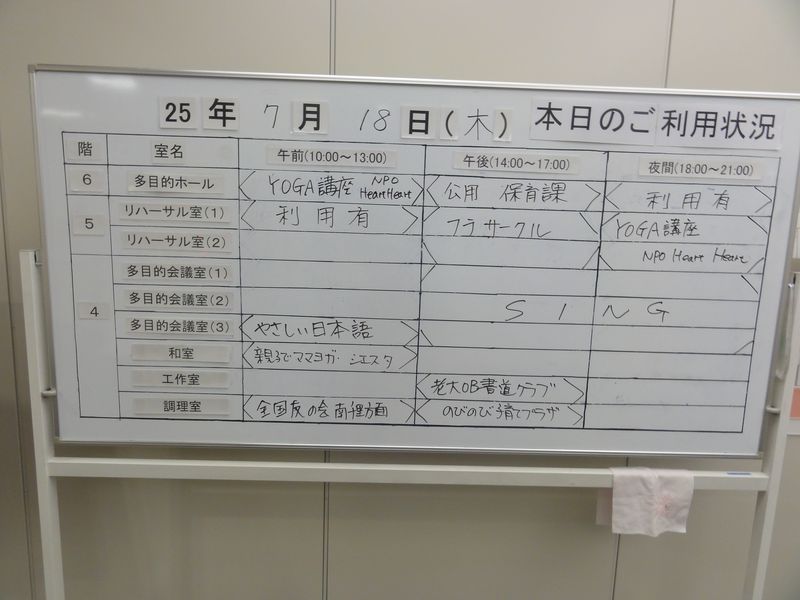 25年 7月 18日(木) 本日のご利用状況
階 室名 午前(10:00～13:00) 午後(14:00～17:00) 夜間(18:00～21:00)
6 多目的ホール YOGA講座 NPO HeartHeart 公用 保育課 利用有
5 リハーサル室(1) 利用有 フラサークル YOGA講座
リハーサル室(2) NPO Heart Heart
4 多目的会議室(1)
多目的会議室(2) SING
多目的会議室(3) やさしい日本語
和室 親子でママヨガ・シエスタ
工作室 老大OB書道クラブ
調理室 全国友の会南理方面 のびのび子育てプラザ